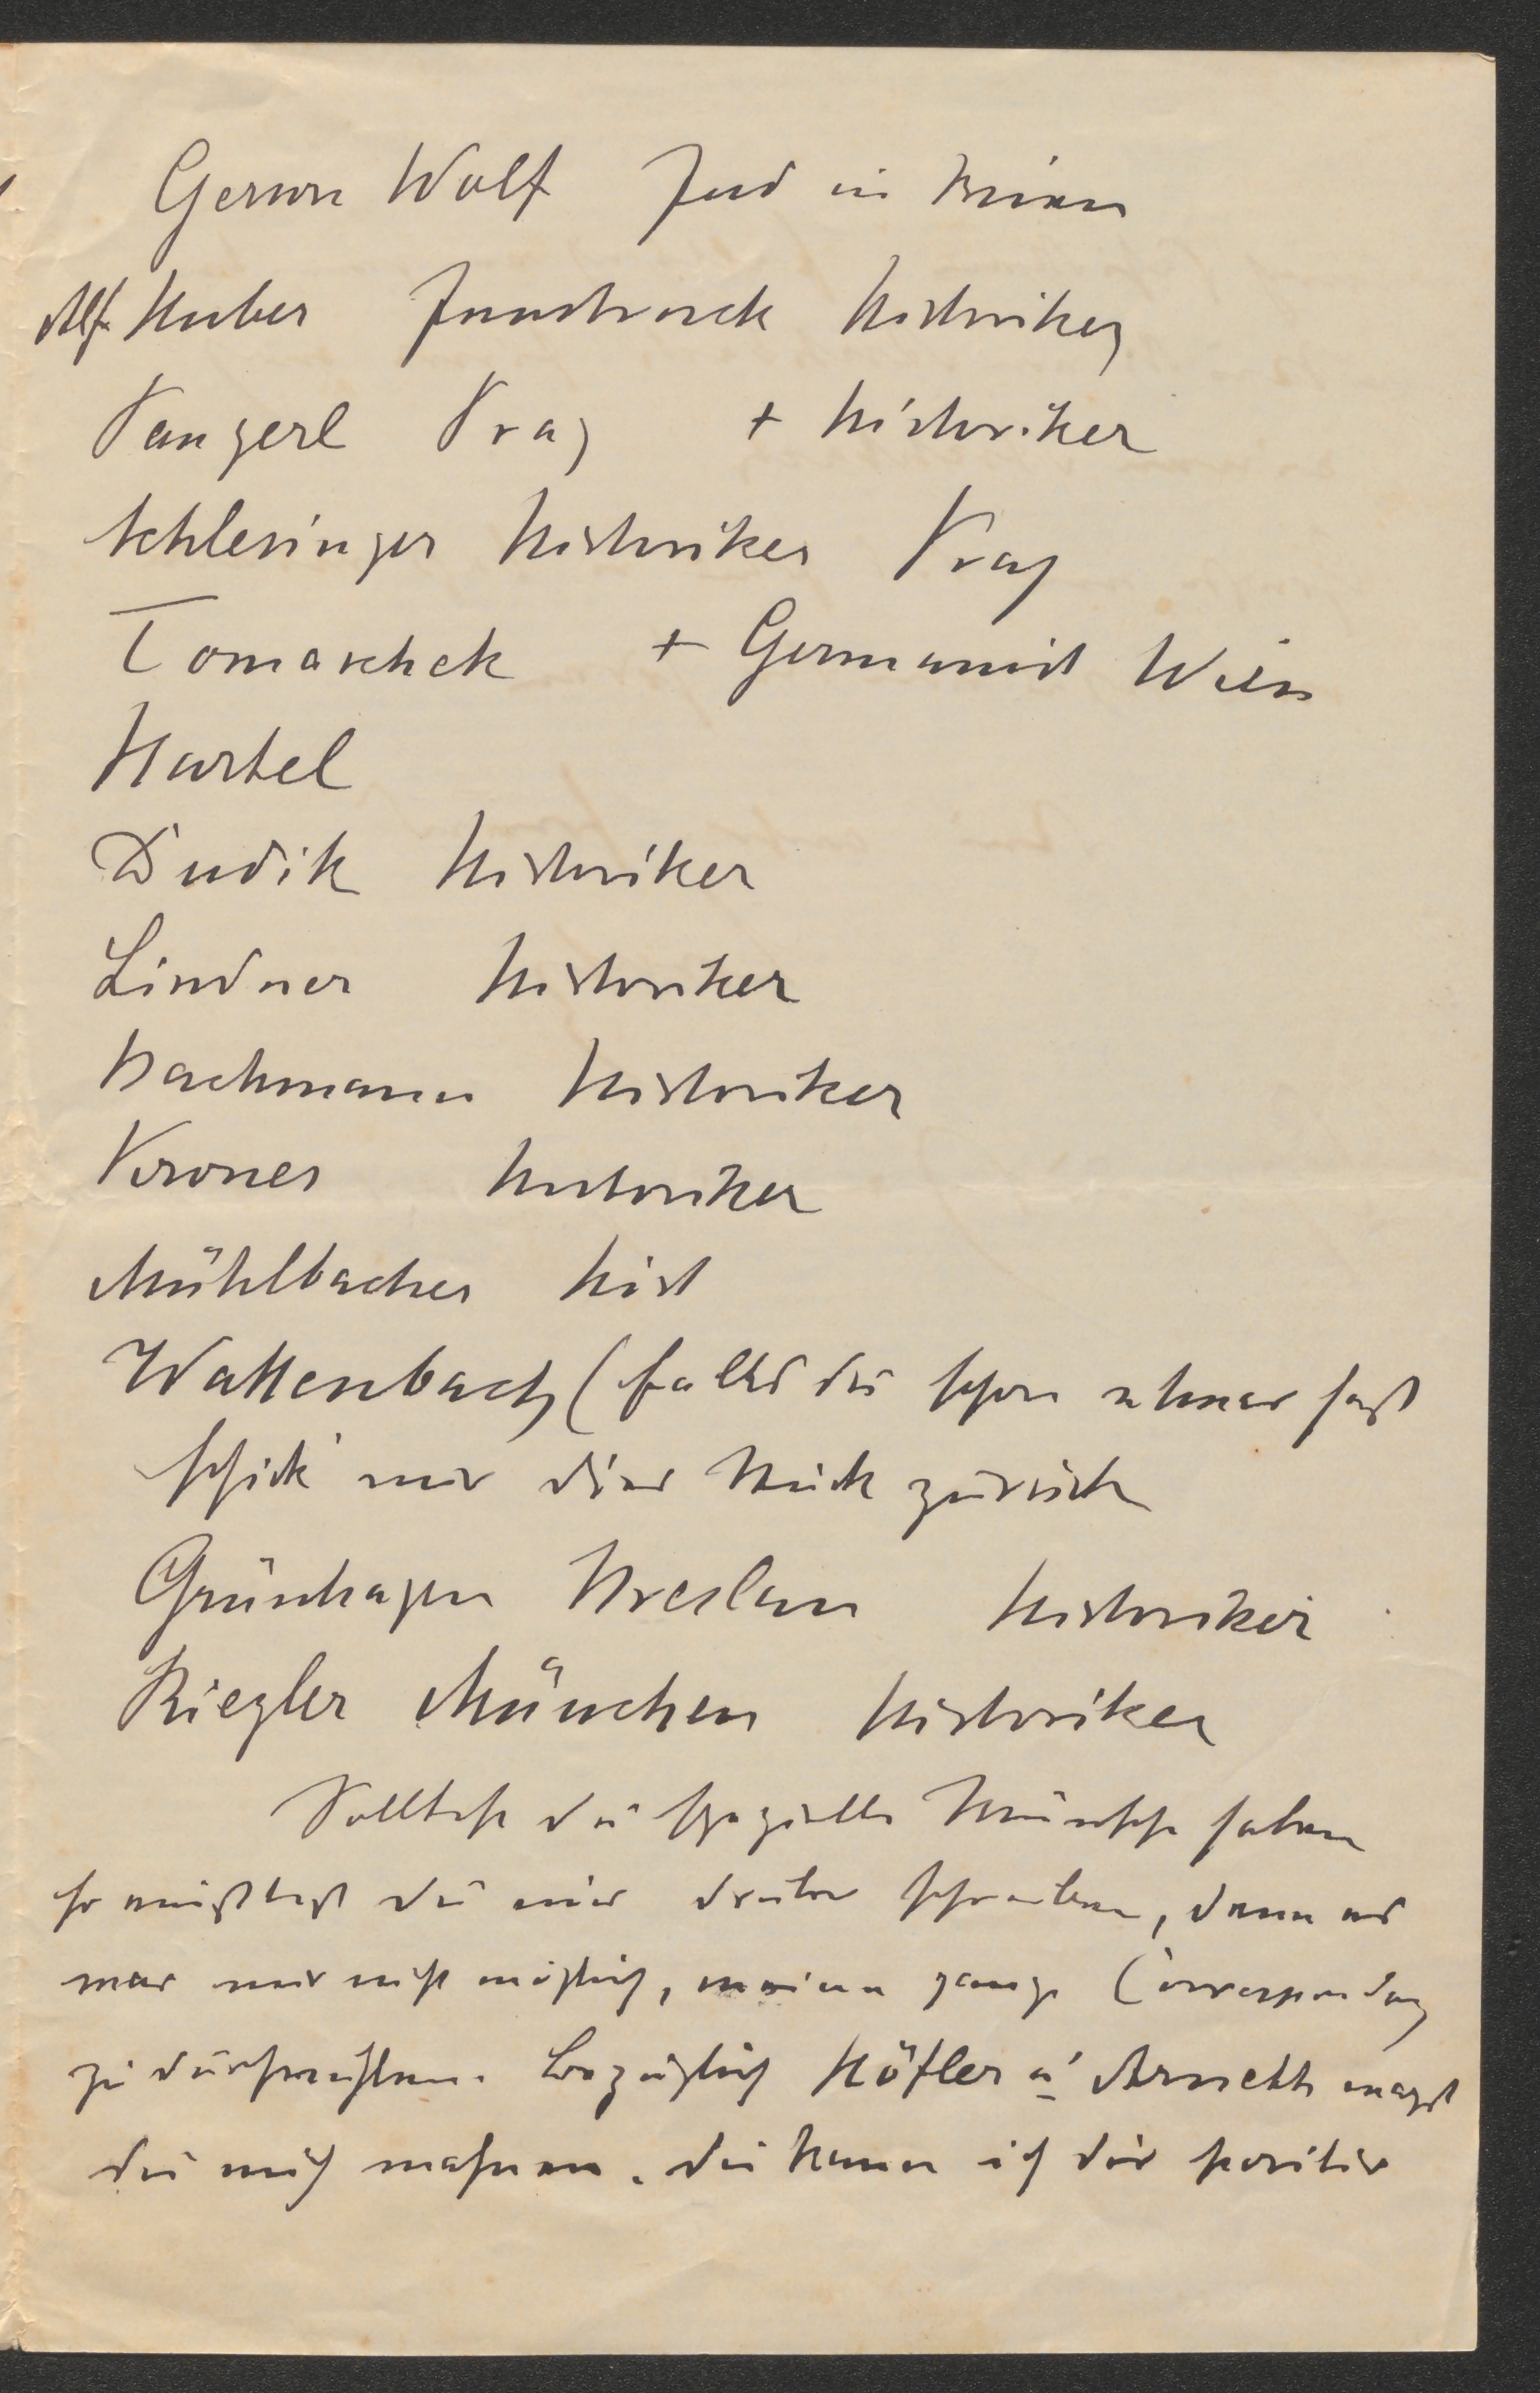 Gerson Wolf Jud in Wien
Alf. Huber Innsbruck Historiker
Pangerl Prag + Historiker
Schlesinger Historiker Prag
Tomaschek + Germanist Wien
Hartel
Dudik Historiker
Lindner Historiker
Bachmann Historiker
Krones Historiker
Mühlbacher Hist
Wattenbach (falls du schon etwas hast
schick mir dies Stück zurück
Grünhagen Breslau Historiker
Riezler München Historiker
Solltest du spezielle Wünsche haben
so müßtest du mir drüber schreiben, denn es
war mir nicht möglich, meine ganze Correspondenz
zu durchsuchen. Bezüglich Höfler u. Arneth magst
du mich mahnen. Die kann ich dir positiv